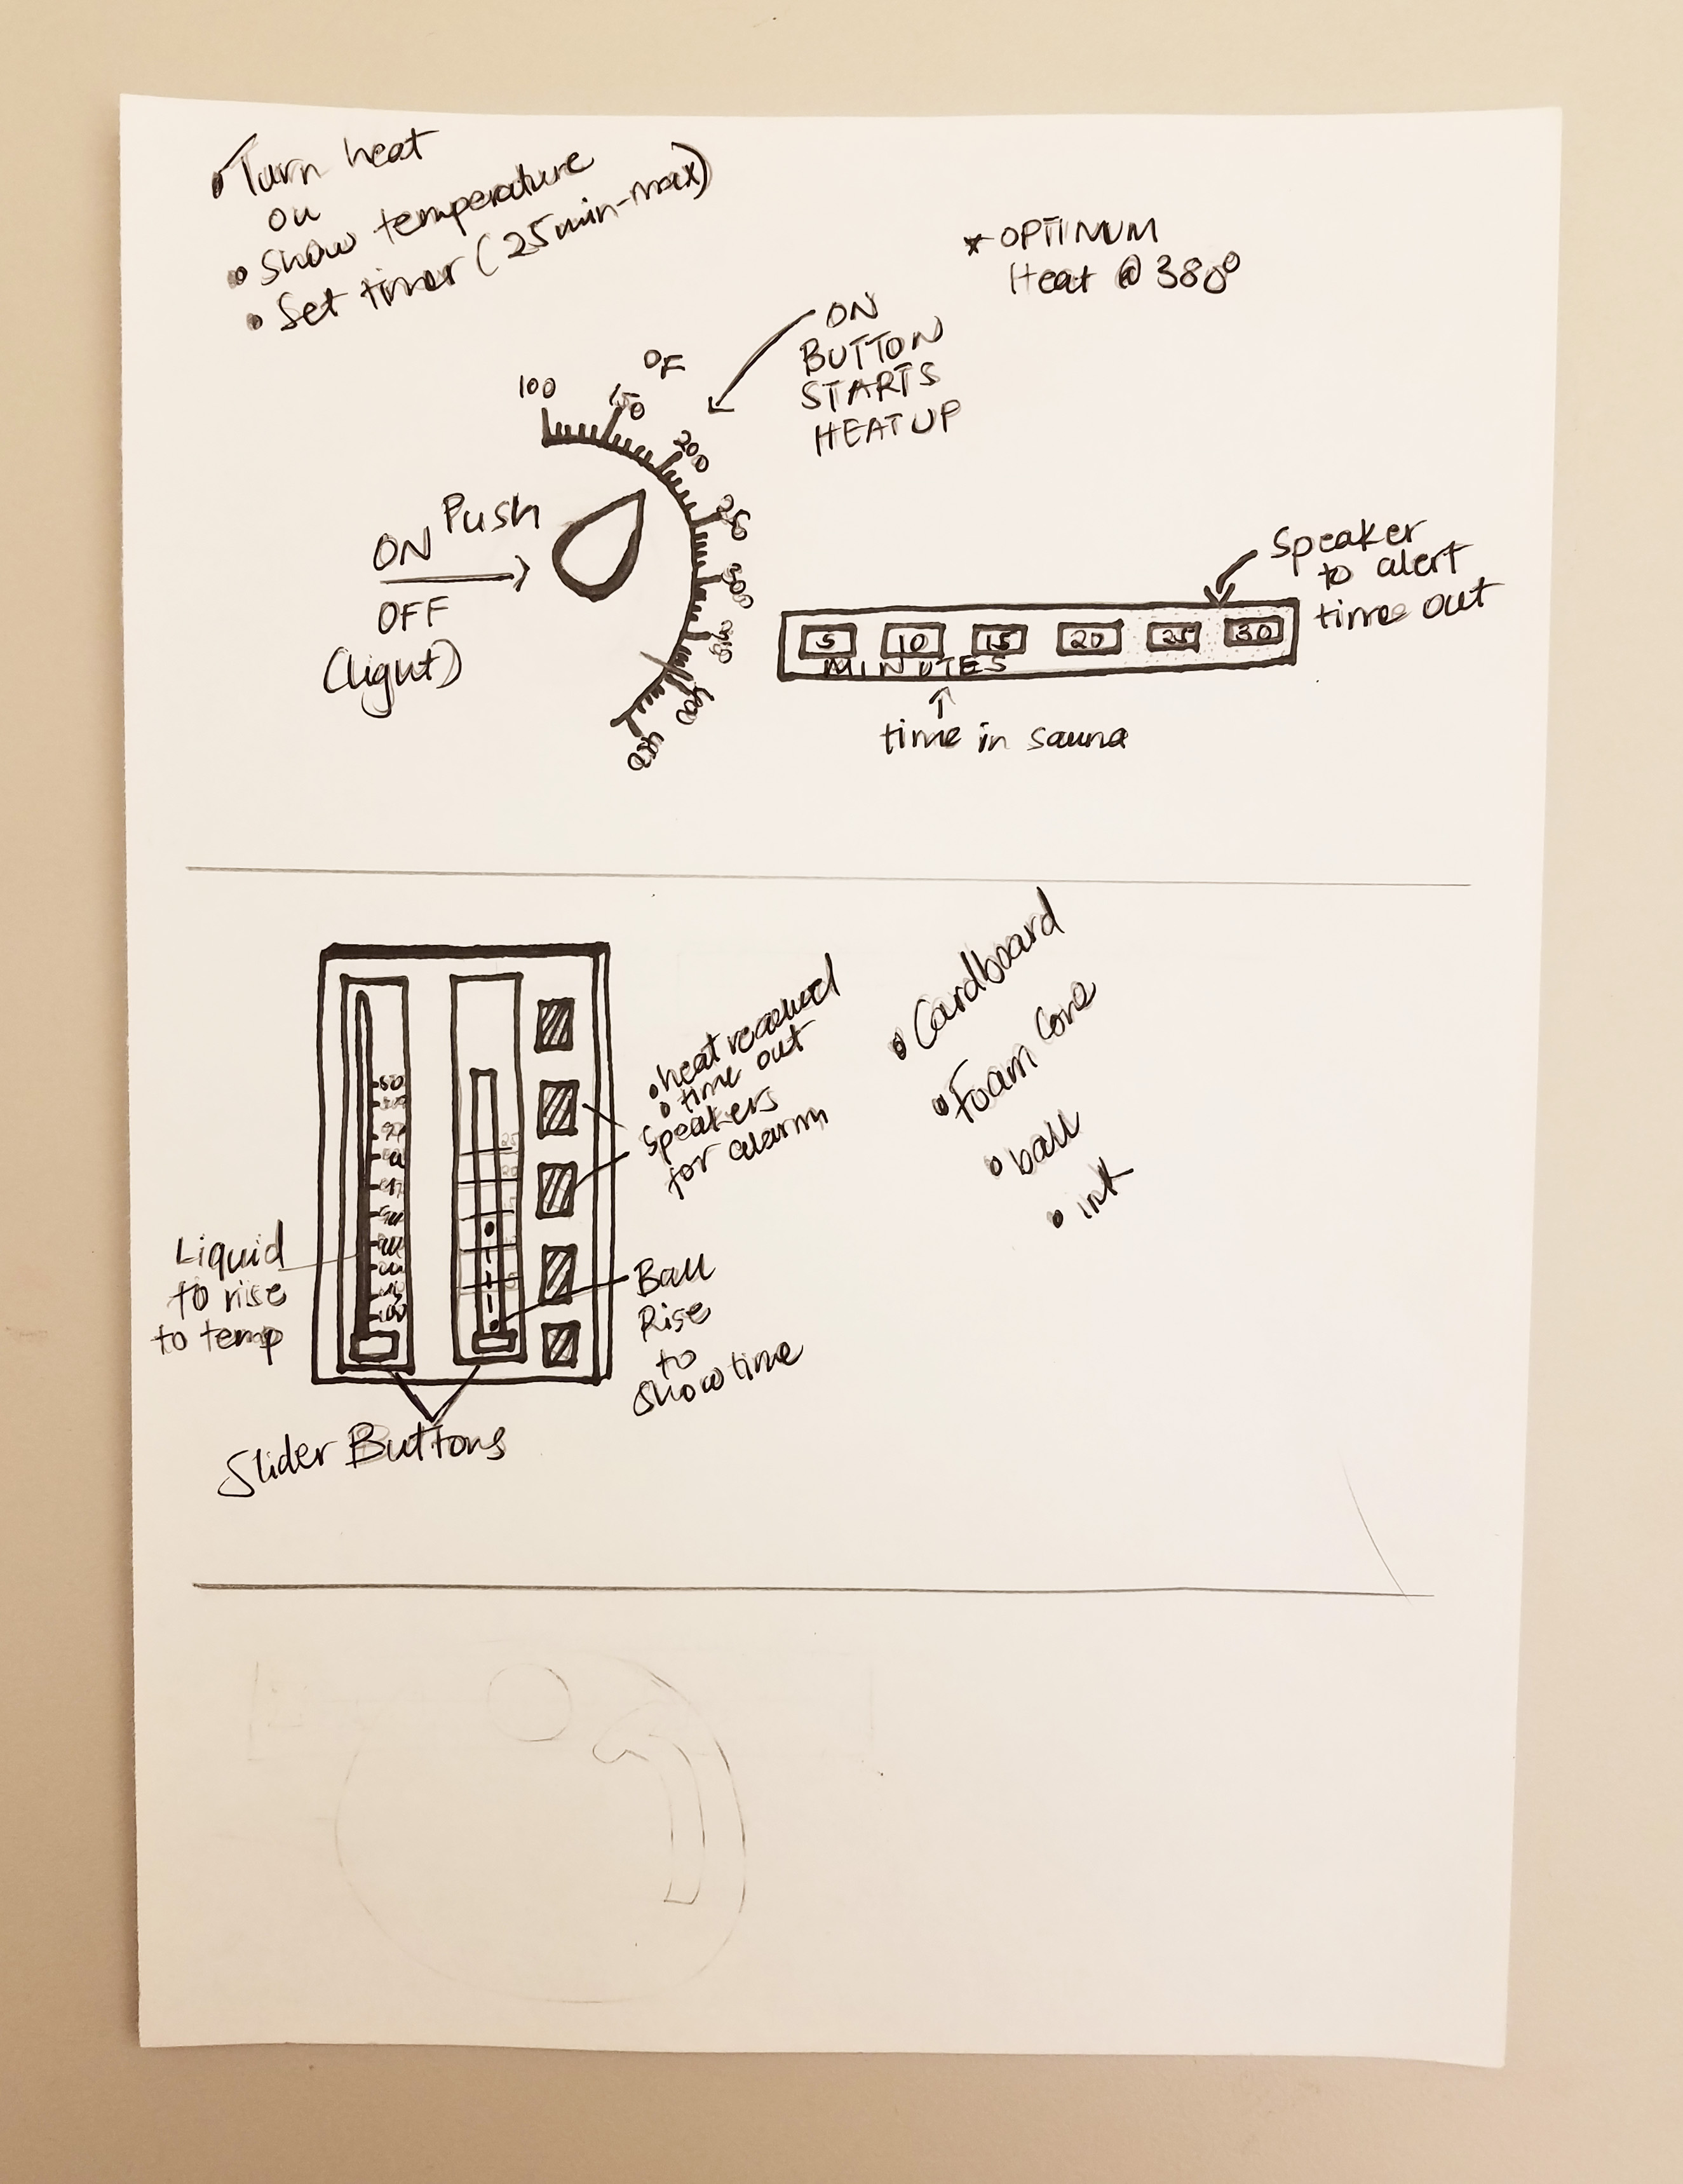 • Turn heat
on
• Show temperature
• Set timer (25min-max)
* OPTIMUM
Heat @ 380°
ON
BUTTON
STARTS
HEAT UP
°F
100
150
200
250
300
350
400
450
Push
ON
OFF
(light)
Speaker
to alert
time out
5 10 15 20 25 30
MINUTES
↑
time in sauna
• heat reached
• time out
Speakers
for alarm
• Cardboard
• Foam Core
• ball
• ink
Liquid
to rise
to temp
100
Ball
Rise
to
Show time
Slider Buttons